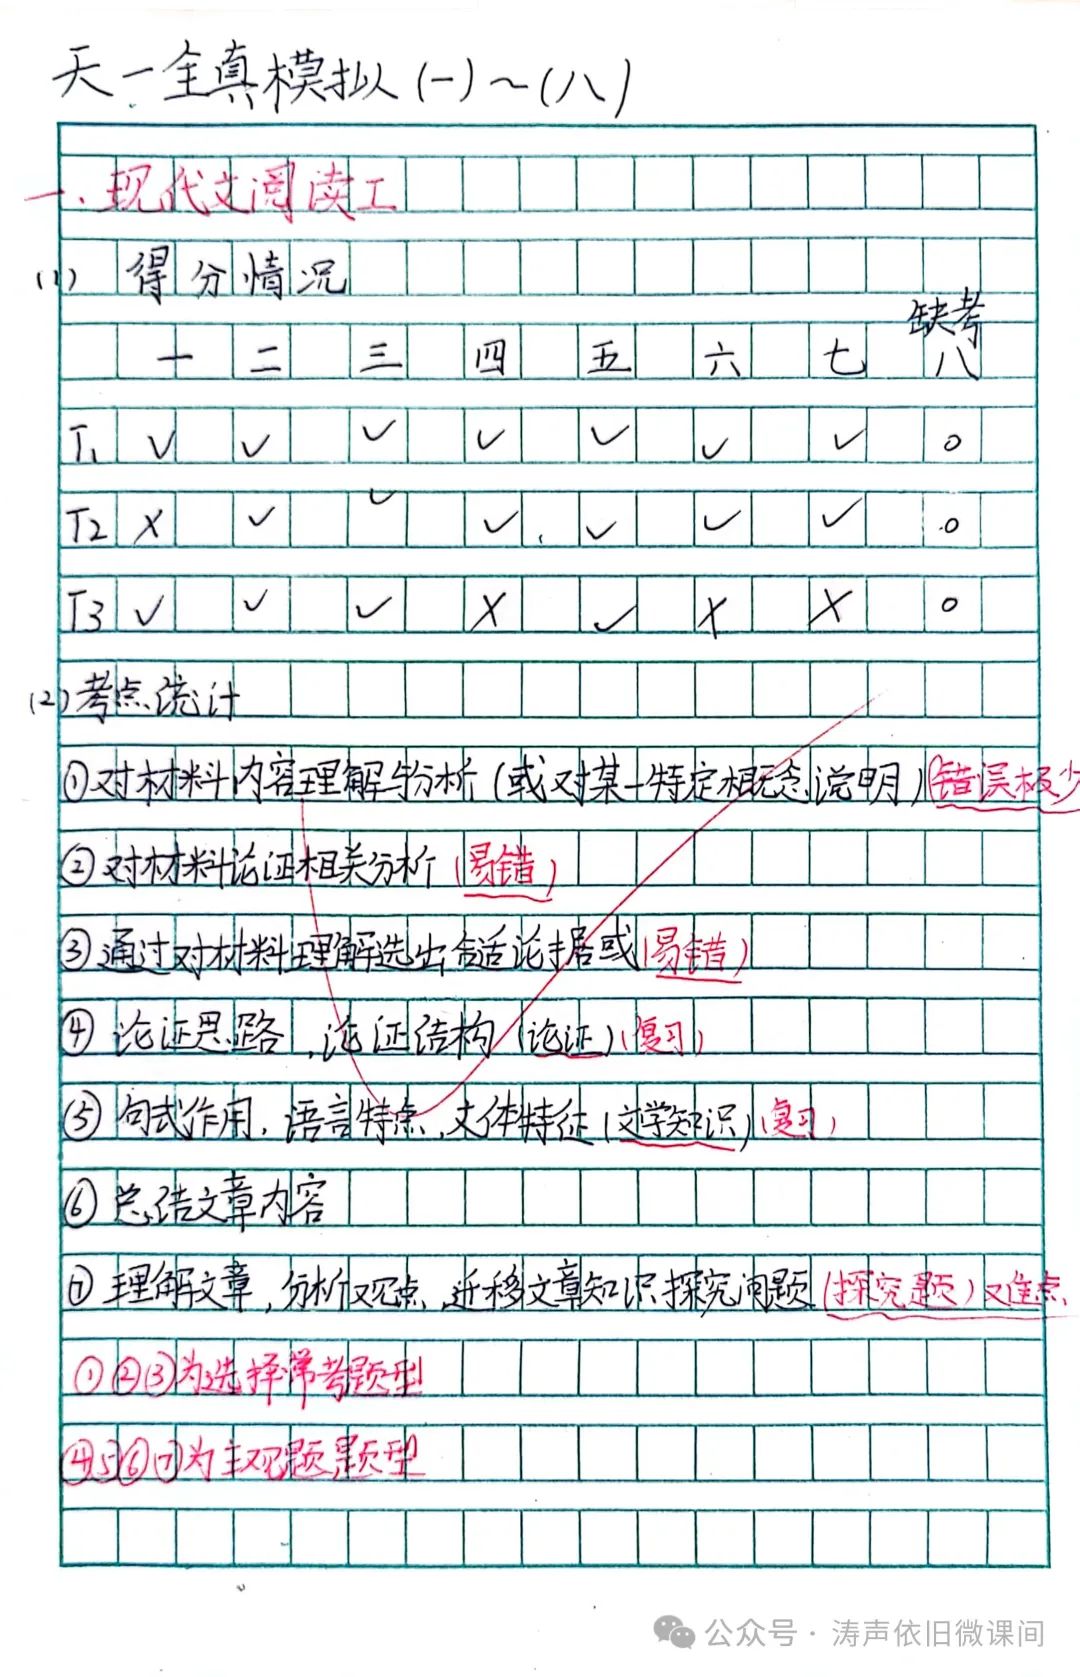 天一全真模拟(一)~(八)
一.现代文阅读I
(1) 得分情况
缺考
一 二 三 四 五 六 七 八
T1 ✓ ✓ ✓ ✓ ✓ ✓ ✓ 0
T2 ✗ ✓ ✓ ✓ ✓ ✓ ✓ 0
T3 ✓ ✓ ✓ ✗ ✓ ✗ ✗ 0
(2)考点统计
①对材料内容理解与分析(或对某一特定概念说明)(错误极少
②对材料论证相关分析(易错)
③通过对材料理解选出合适论据或(易错)
④论证思路,论证结构(论证)(复习)
⑤句式作用,语言特点,文体特征(文学知识)(复习)
⑥总结文章内容
⑦理解文章,分析观点,迁移文章知识探究问题(探究题)难点
①②③为选择常考题型
④⑤⑥⑦为主观题题型
公众号·涛声依旧微课间